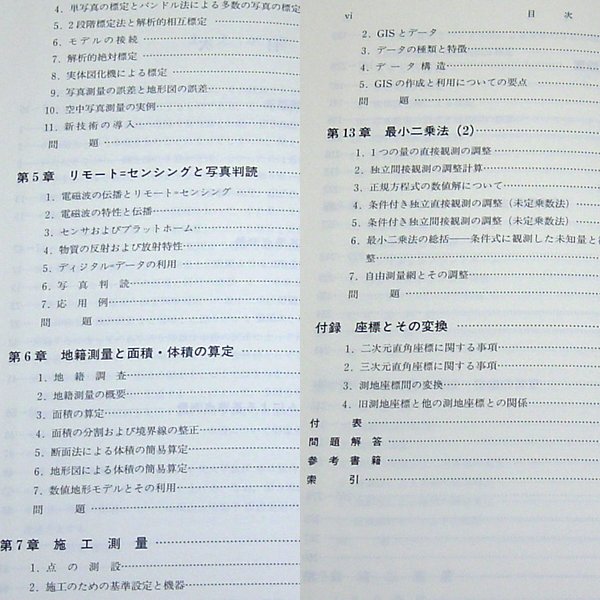 4. 単写真の標定とバンドル法による多数の写真の標定
5. 2段階標定法と解析的相互標定
6. モデルの接続
7. 解析的絶対標定
8. 実体図化機による標定
9. 写真測量の誤差と地形図の誤差
10. 空中写真測量の実例
11. 新技術の導入
問題
第5章 リモート=センシングと写真判読
1. 電磁波の伝播とリモート=センシング
2. 電磁波の特性と伝播
3. センサおよびプラットホーム
4. 物質の反射および放射特性
5. ディジタル=データの利用
6. 写真判読
7. 応用例
問題
第6章 地籍測量と面積・体積の算定
1. 地籍調査
2. 地籍測量の概要
3. 面積の算定
4. 面積の分割および境界線の整正
5. 断面法による体積の簡易算定
6. 地形図による体積の簡易算定
7. 数値地形モデルとその利用
問題
第7章 施工測量
1. 点の測設
2. 施工のための基準設定と機器
vi 目次
2. GISとデータ
3. データの種類と特徴
4. データ構造
5. GISの作成と利用についての要点
問題
第13章 最小二乗法(2)
1. 1つの量の直接観測の調整
2. 独立間接観測の調整計算
3. 正規方程式の数値解について
4. 条件付き独立直接観測の調整(未定乗数法)
5. 条件付き独立間接観測の調整(未定乗数法)
6. 最小二乗法の総括――条件式に観測した未知量と
整
7. 自由測量網とその調整
問題
付録 座標とその変換
1. 二次元直角座標に関する事項
2. 三次元直角座標に関する事項
3. 測地座標間の変換
4. 旧測地座標と他の測地座標との関係
付表
問題解答
参考書籍
索引